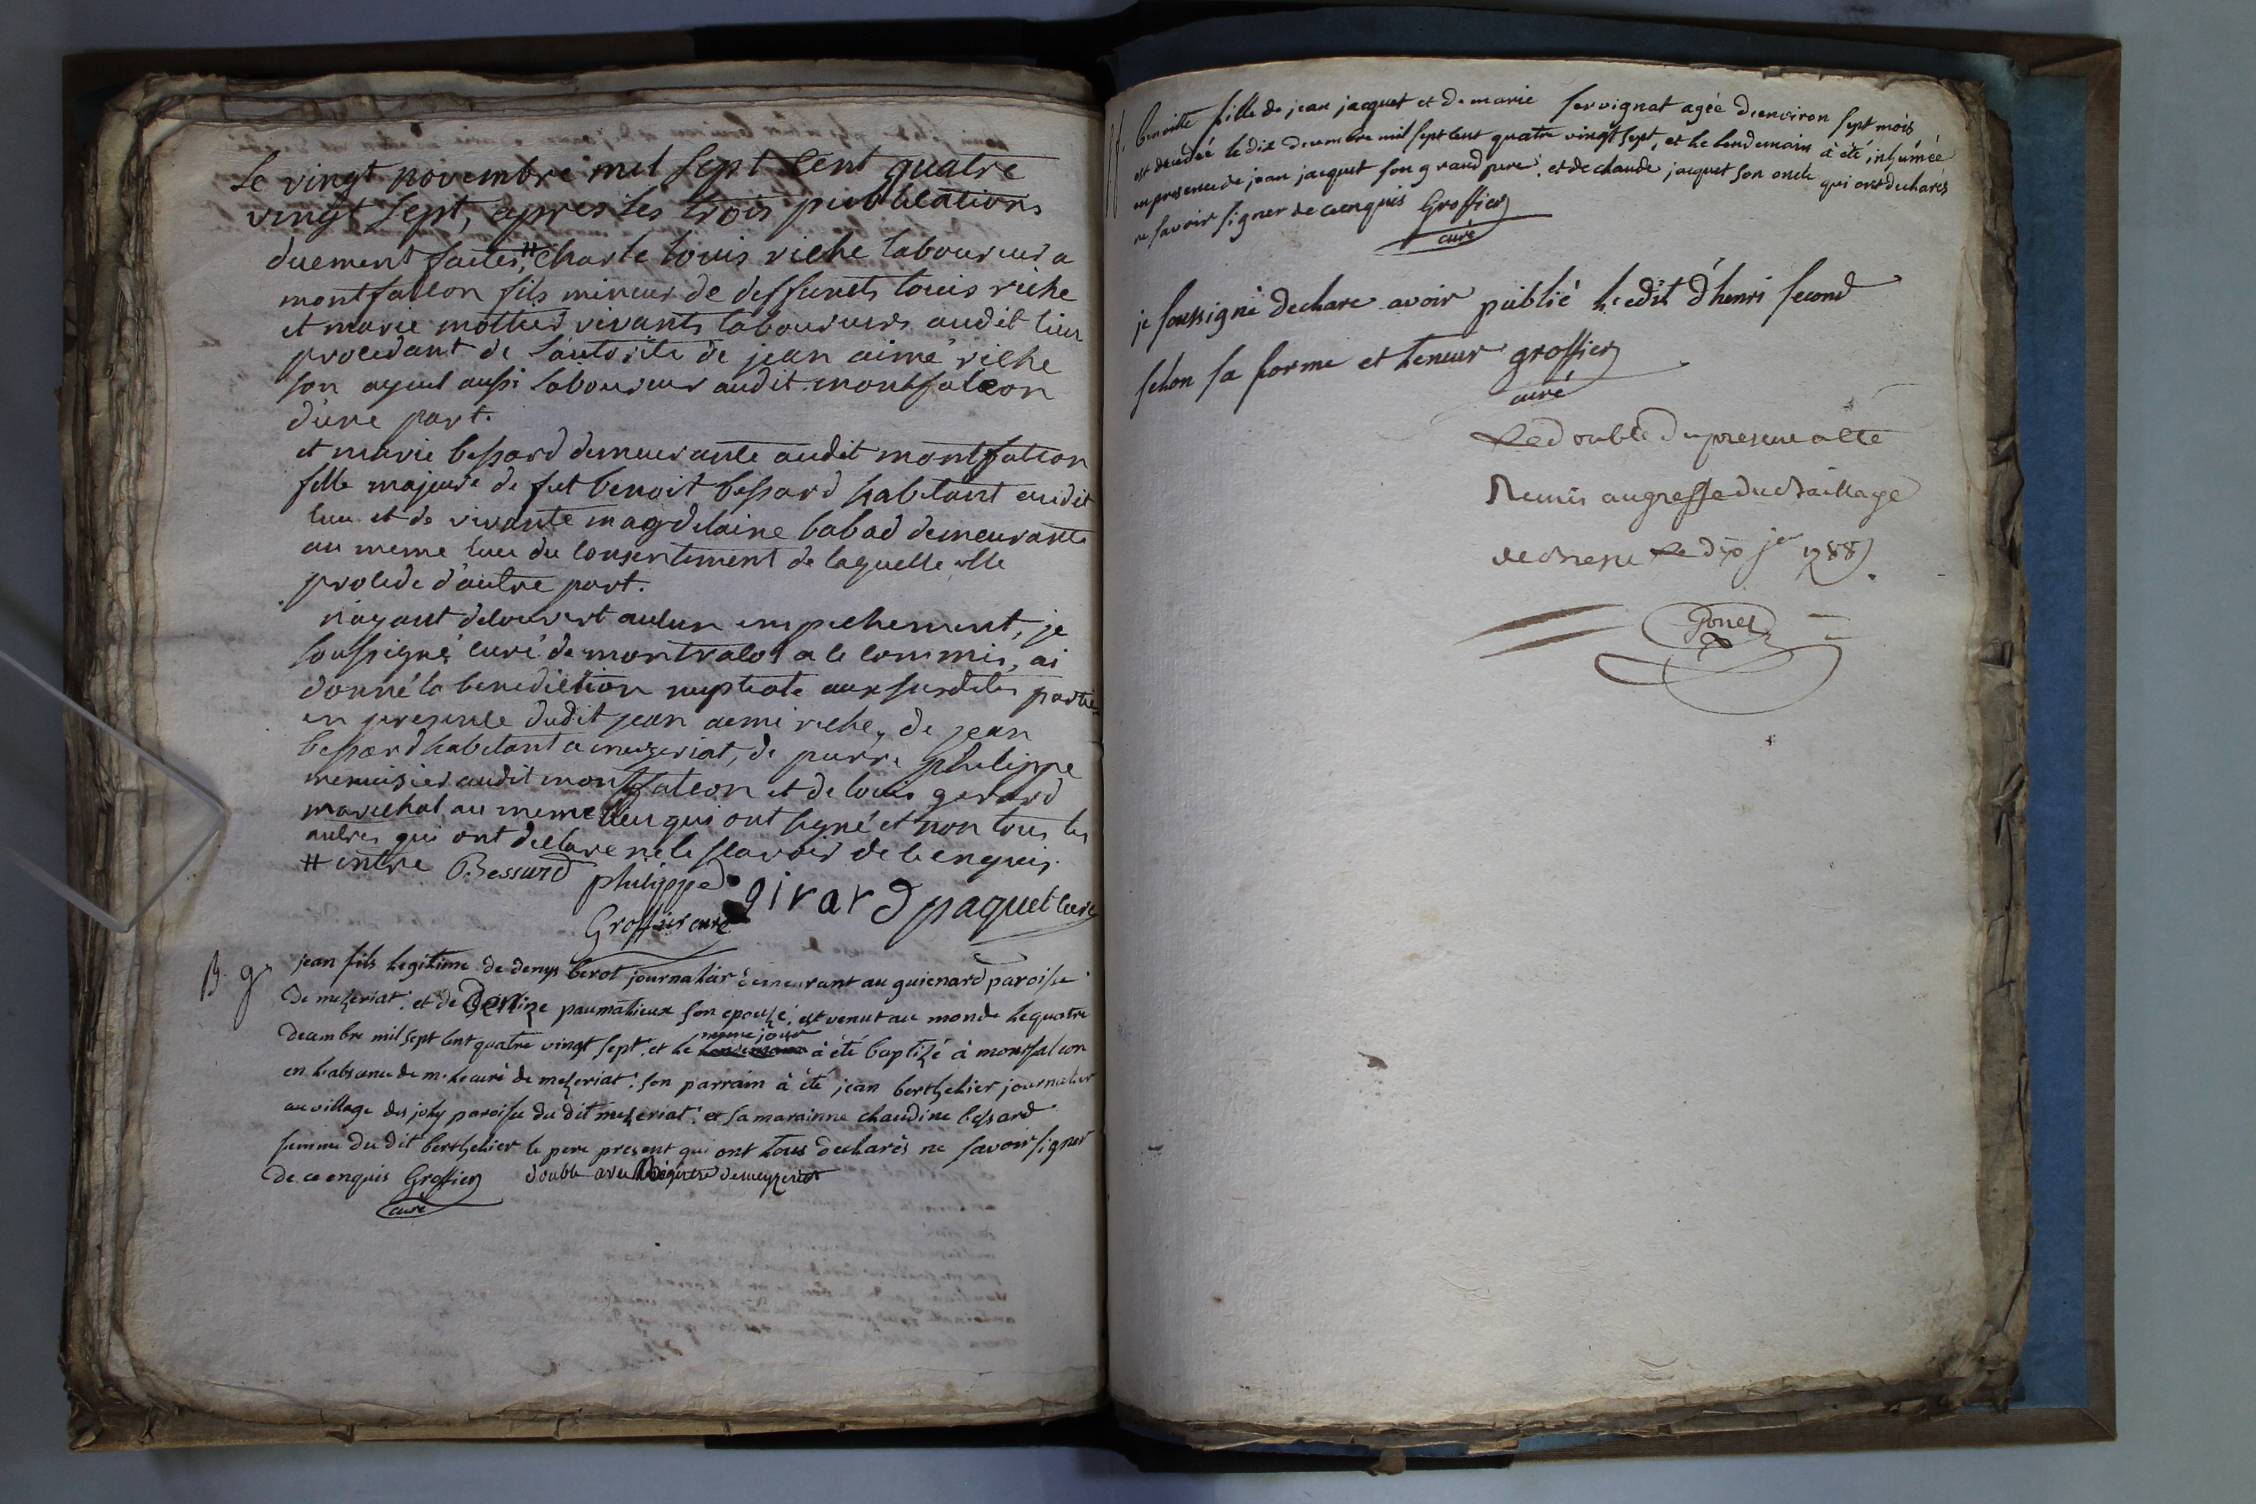 Le vingt novembre mil sept cent quatre
vingt sept, apres les trois publications
duement faites, # Charle louis riche laboureur a
montfalcon fils mineur de deffunts louis riche
et marie mottier vivants laboureurs audit lieu
procedant de l'autorité de jean aimé riche
son ayeul aussi laboureur audit montfalcon
d'une part.
et marie bessard demeurante audit montfalcon
fille majeure de fut benoit bessard habitant audit
lieu et de vivante magdelaine babad demeurante
au meme lieu du consentement de laquelle elle
procede d'autre part.
n'ayant decouvert aucun empechement, je
soussigné curé de montfalcon a ce commis, ai
donné la benediction nuptiale aux susdites parties
en presence dudit jean aimé riche, de jean
bessard habitant a mezeriat, de pierre philippe
menuisier audit montfalcon et de louis gerard
marechal au meme lieu qui ont signé et non tous les
autres qui ont declare ne le scavoir de ce enquis.
# entre Bessard philippe girard paquet curé
Groffier curé
B. g. jean fils legitime de denys berot journalier demeurant au guienard paroisse
de mezeriat. et de Denize paumatieux son epouse, est venut au monde le quatre
decembre mil sept cent quatre vingt sept. et le même jour à été baptizé à montfalcon
en l'absence de m. le curé de mezeriat. son parrain à été jean berthelier journalier
au village des joly paroisse du dit mezeriat. et sa marainne claudine bessard
femme du dit berthelier le pere present qui ont tous declarés ne savoir signer
de ce enquis Groffier double avec Régistre de meyzeriat
curé
f. benoitte fille de jean jacquet et de marie servignat agée d'environ sept mois
est decedée le dix decembre mil sept cent quatre vingt sept, et le lendemain à été inhumée
en presence de jean jacquet son grand pere. et de claude jacquet son oncle qui ont declarés
ne savoir signer de ce enquis Groffier
curé
je soussigné declare avoir publié l'edit d'henri second
selon sa forme et teneur groffier
curé
Le double du present acte
Remis au greffe du Baillage
de Bresse Le dix jer 1788